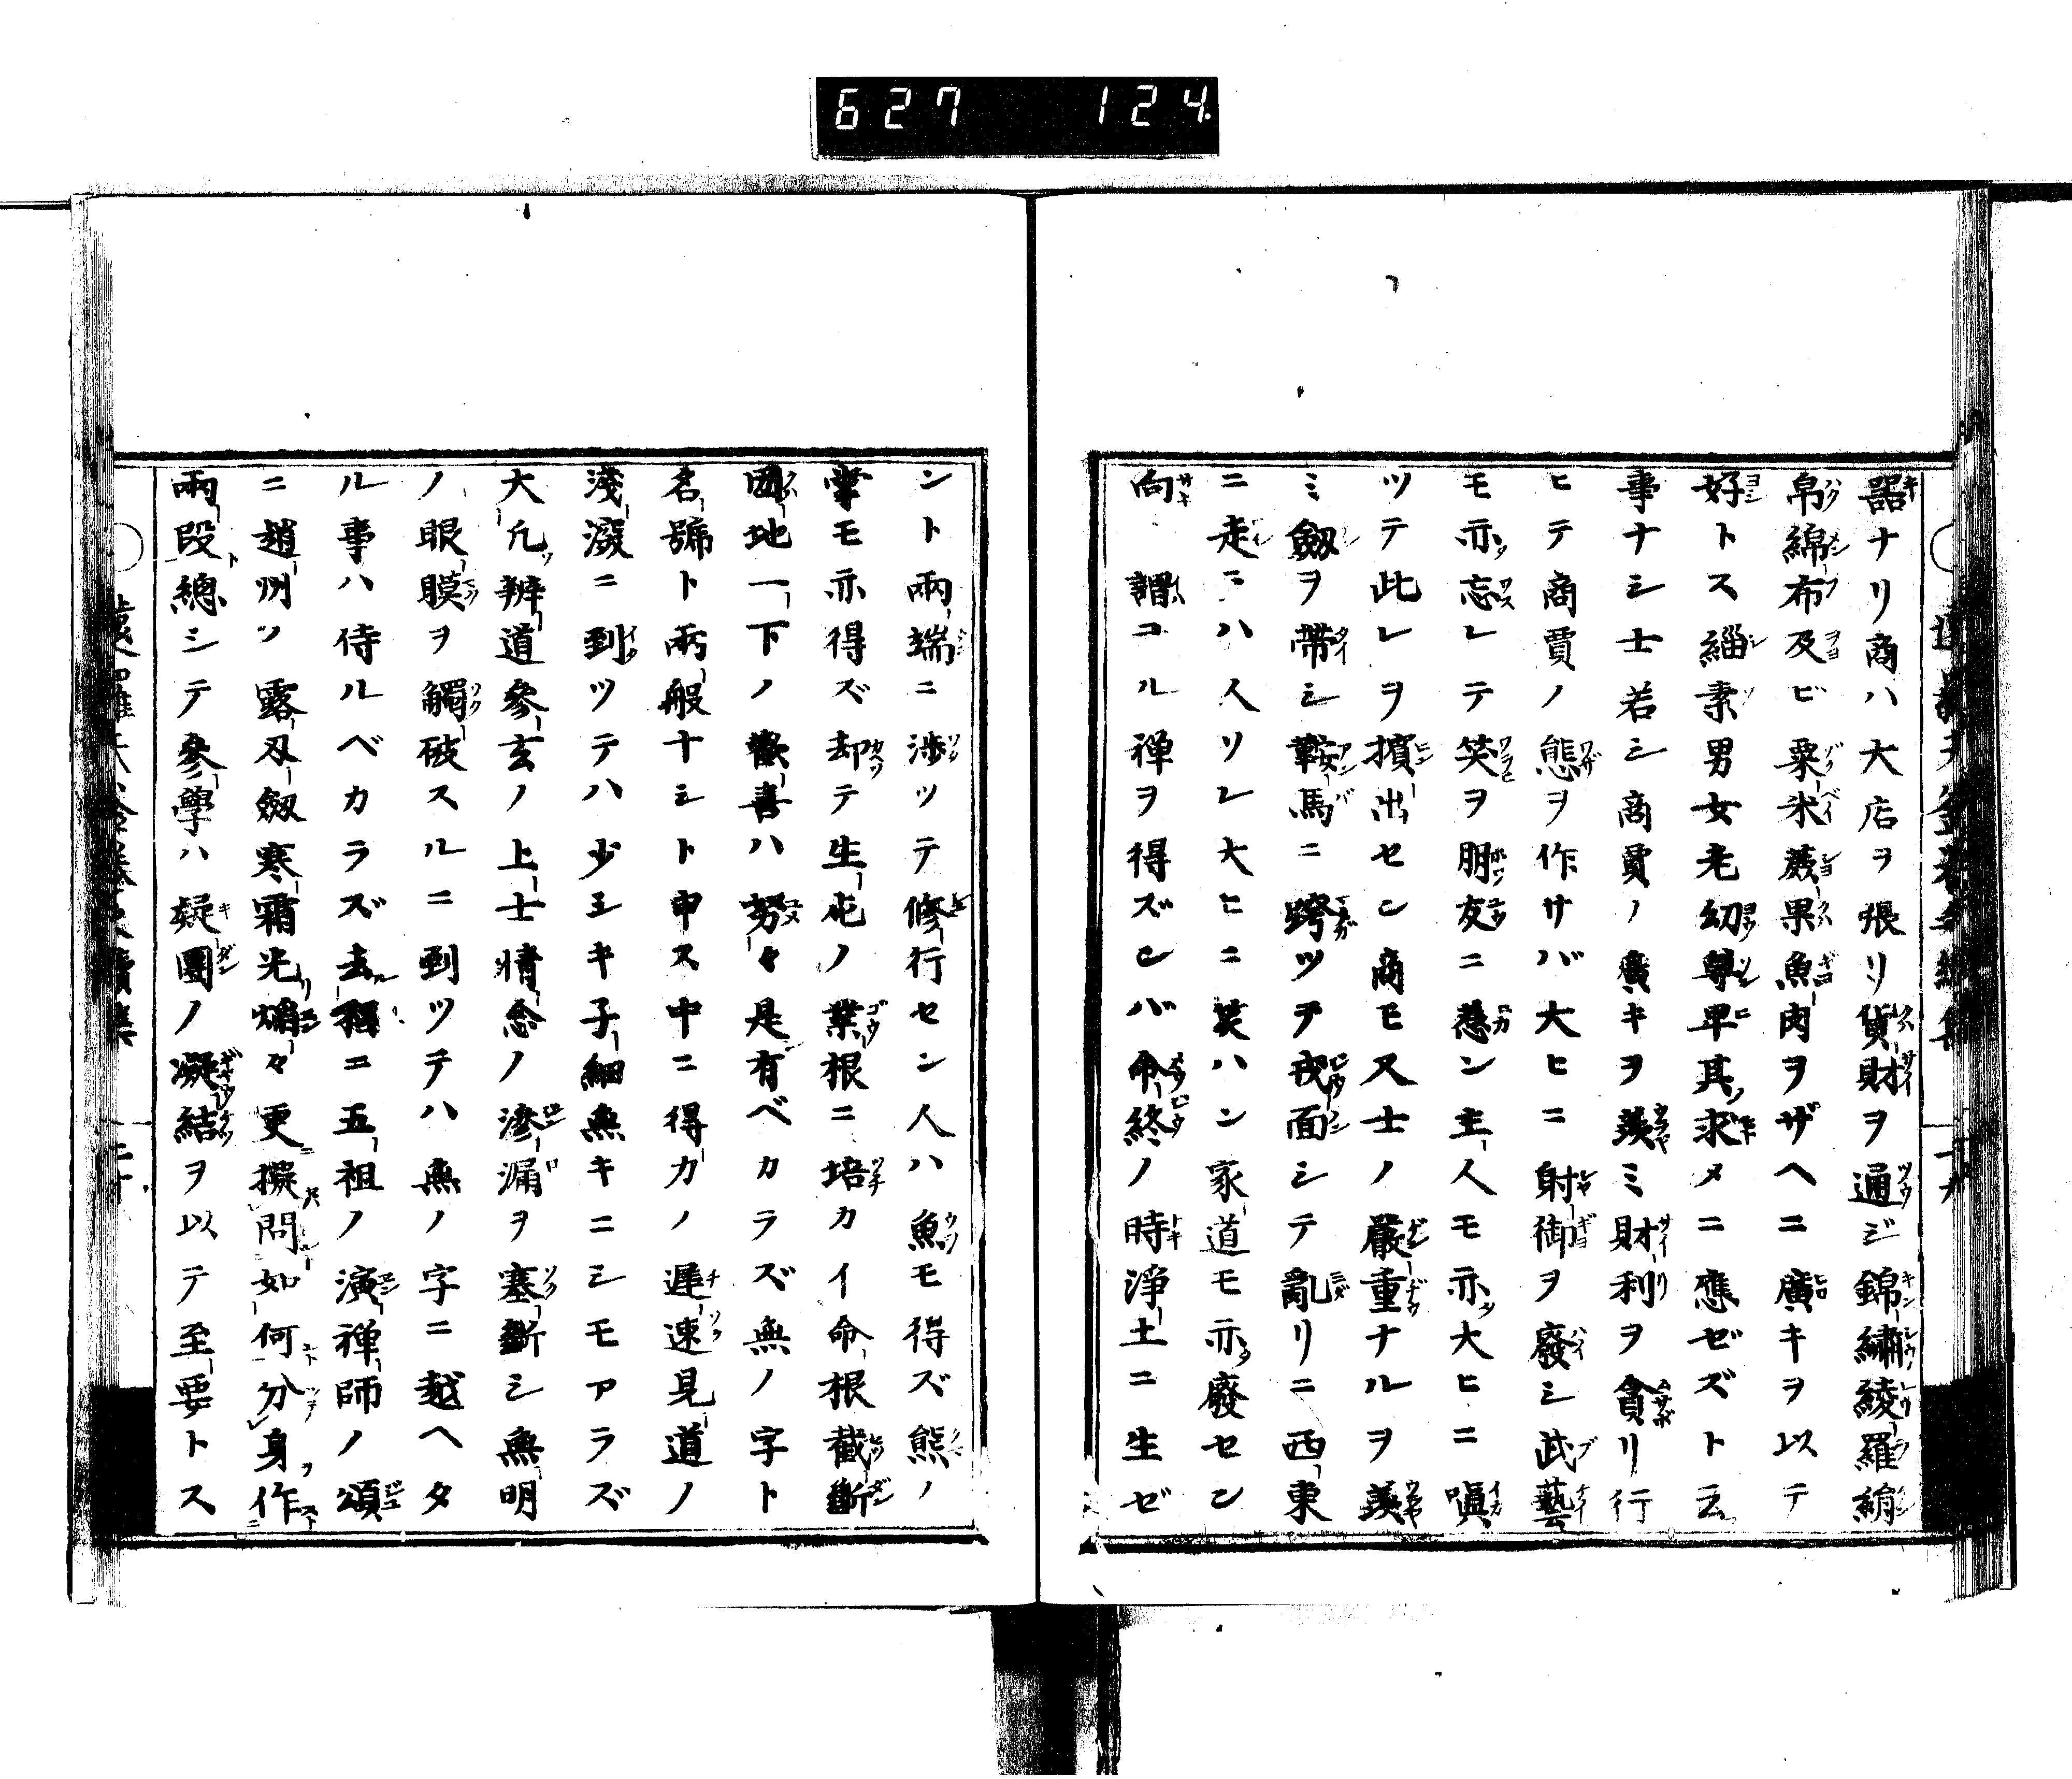 627 124
器ナリ商ハ大店ヲ張リ貨財ヲ通ジ錦繡綾羅絹
帛綿布及ビ粟米蔬果魚肉ヲザヘニ廣キヲ以テ
好トス緇素男女老幼尊卑其求メニ應ゼズト云
事ナシ士若シ商賈ノ廣キヲ羨ミ財利ヲ貪リ行
ヒテ商賈ノ態ヲ作サバ大ヒニ射御ヲ廢シ武藝
モ亦忘レテ笑ヲ朋友ニ惹ン主人モ亦大ヒニ嗔
ツテ此レヲ擯出セン商モ又士ノ嚴重ナルヲ羨
ミ劔ヲ帶シ鞍馬ニ跨ツヲ戎面シテ亂リニ西東
ニ走ニハ人リレ大ヒニ笑ハン家道モ亦廢セン
向謂コル禅ヲ得ズンバ命終ノ時淨土ニ生ゼ
ント兩端ニ渉ッテ修行セン人ハ魚モ得ズ熊ノ
掌モ亦得ズ却テ生死ノ業根ニ培カイ命根截斷
囫地一下ノ歡喜ハ努々是有ベカラズ無ノ字ト
名號ト兩般ナシト申ス中ニ得力ノ遲速見道ノ
淺深ニ到ツテハ少シキ子細無キニシモアラズ
大凡辨道參玄ノ上士情念ノ滲漏ヲ塞斷シ無明
ノ眼膜ヲ觸破スルニ到ツテハ無ノ字ニ越ヘタ
ル事ハ侍ルベカラズ去程ニ五祖ノ演禅師ノ頌
ニ趙州ノ露刃劔寒霜光焔々更擬問如何分身作
兩段總シテ參學ハ疑團ノ凝結ヲ以テ至要トス